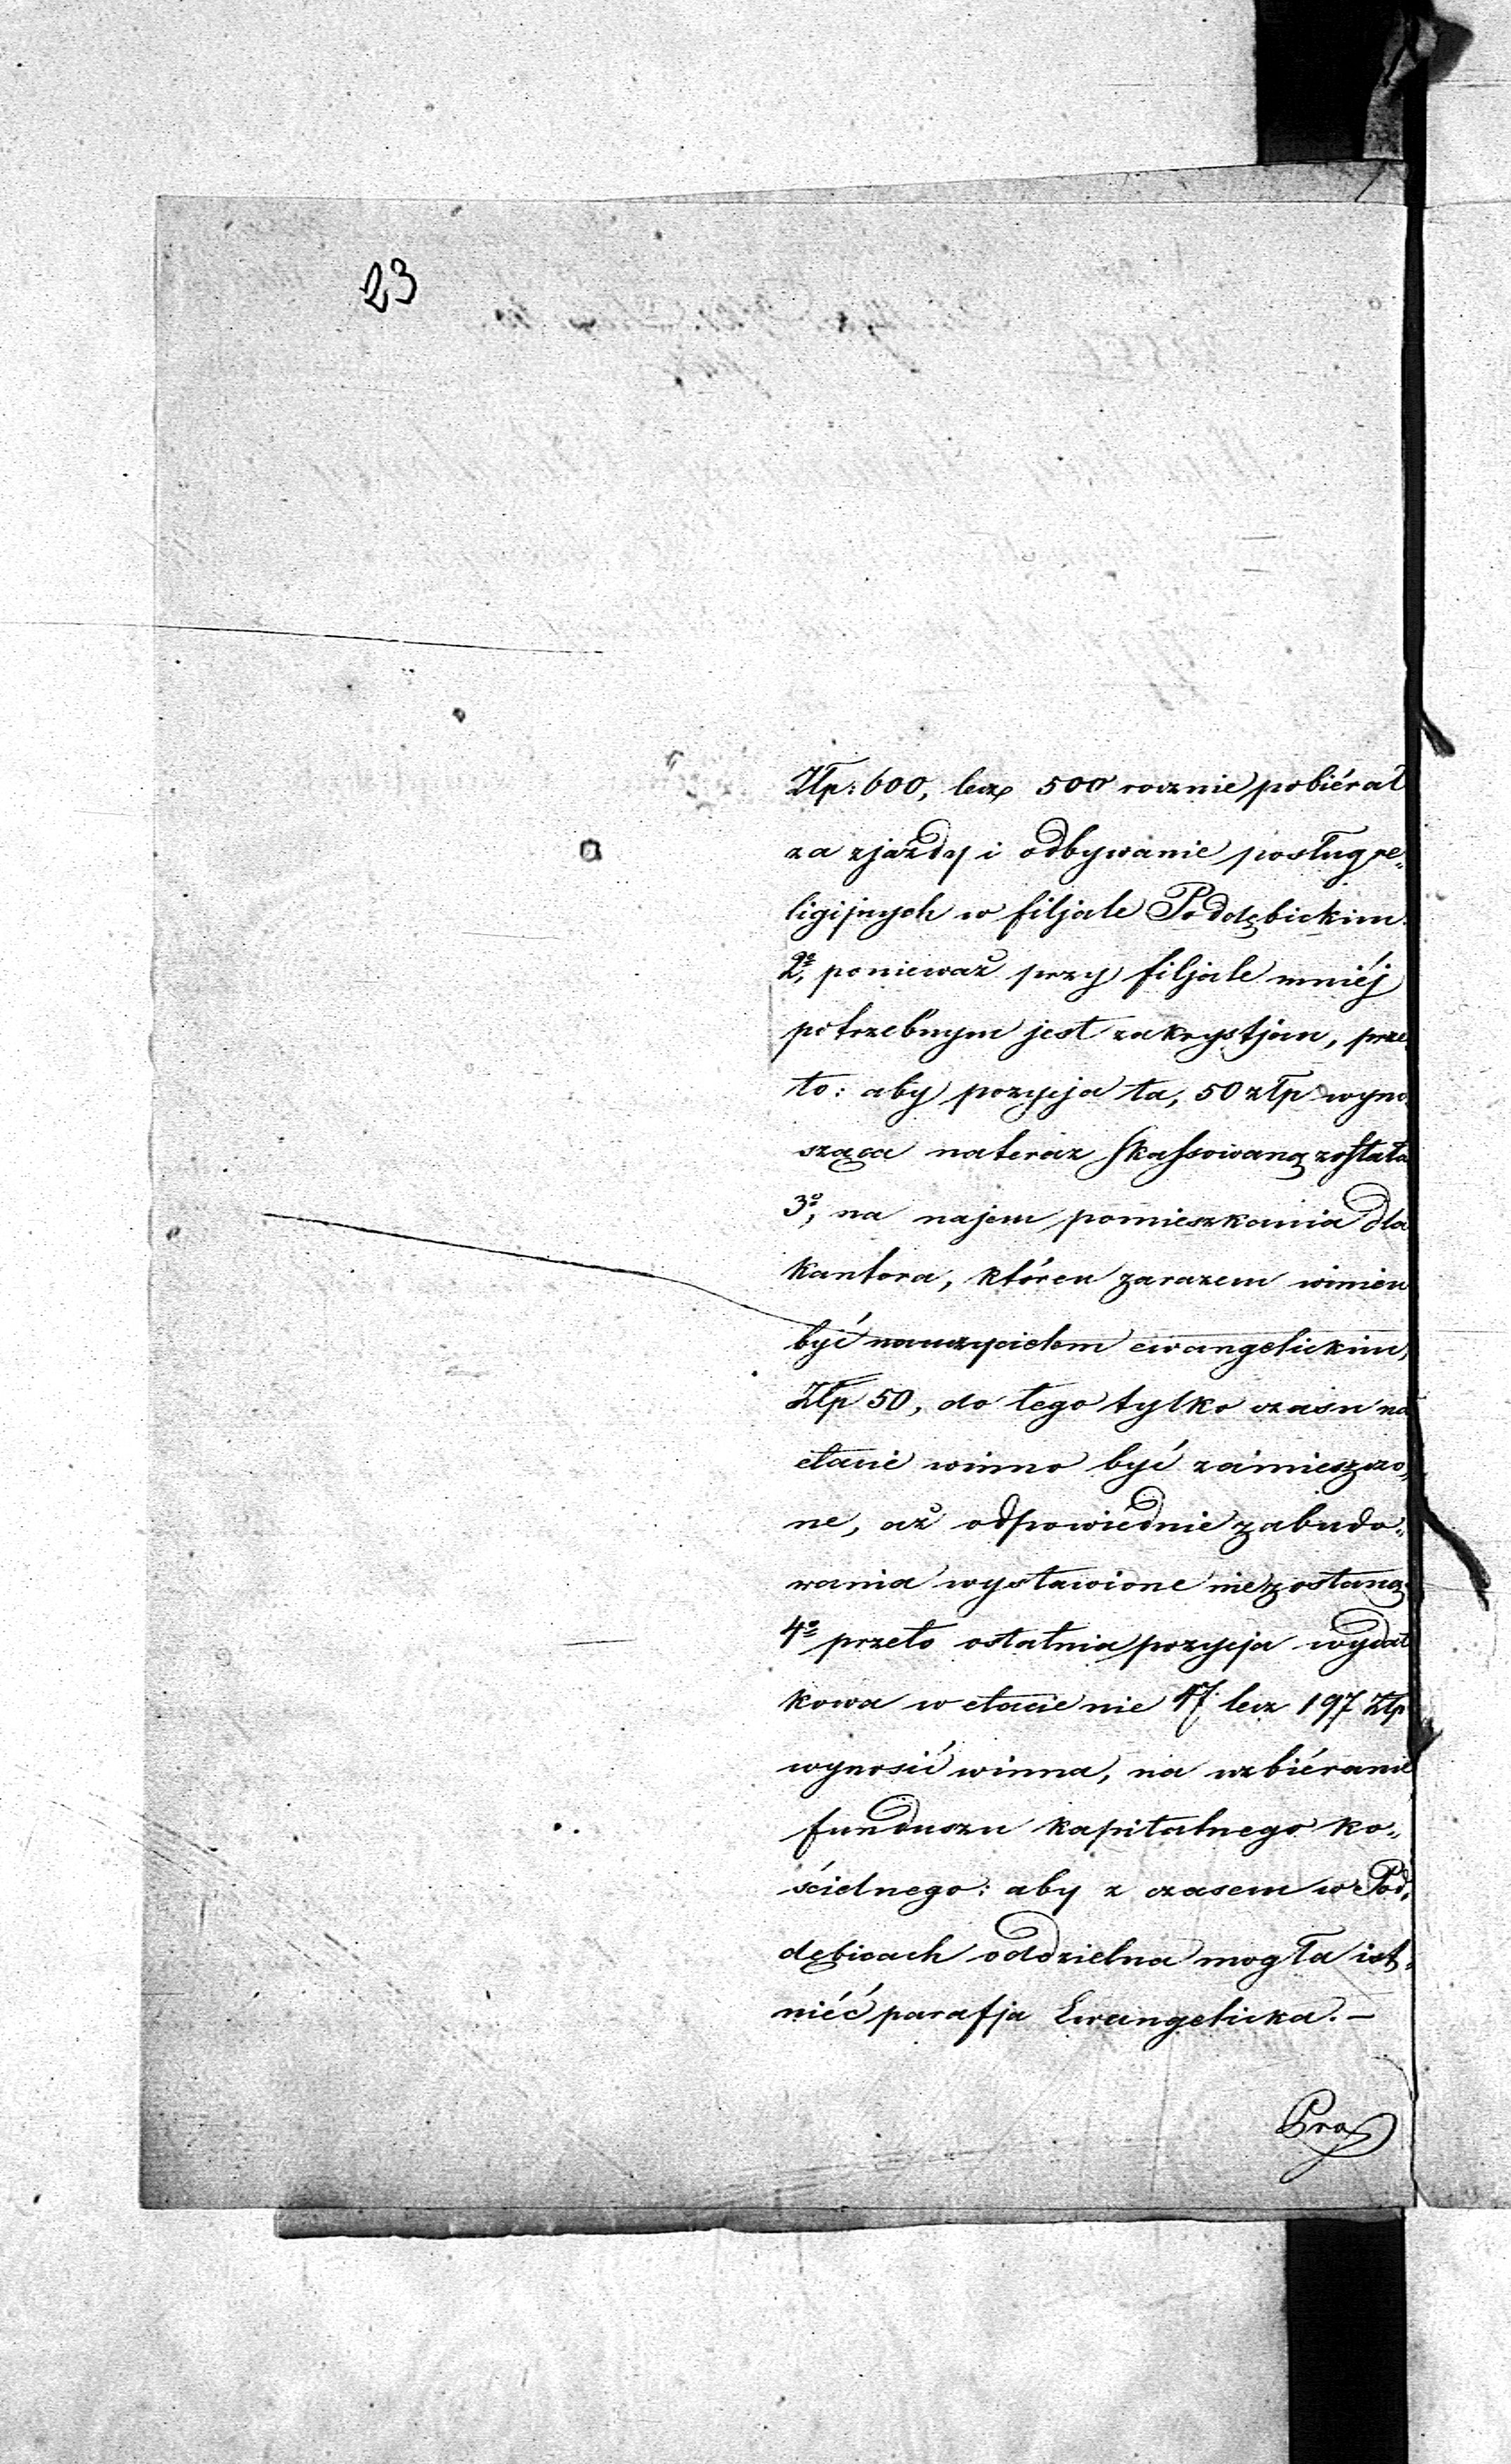 23
Złp: 600, lecz 500 rocznie pobiérał
za zjazdy i odbywanie posług re„
ligijnych w filjale Poddębickim.
2º, ponieważ przy filjale mniéj
potrzebnym jest zakrystjan, prze„
to: aby pozycja ta, 50 złp wyno„
sząca nateraz skassowaną została
3º, na najem pomieszkania dla
kantora, któren zarazem winien
być nauczycielem ewangelickim,
Złp 50, do tego tylko czasu na
etacie winno być zamieszczo„
ne, aż odpowiednie zabudo„
wania wystawione niezostaną
4º przeto ostatnia pozycja wydat
kowa w etacie nie 47 lecz 197 Złp
wynosić winna, na uzbiéranie
funduszu kapitalnego ko„
ścielnego: aby z czasem w Pod„
dębicach oddzielna mogła ist„
niéć parafja Ewangelicka. —